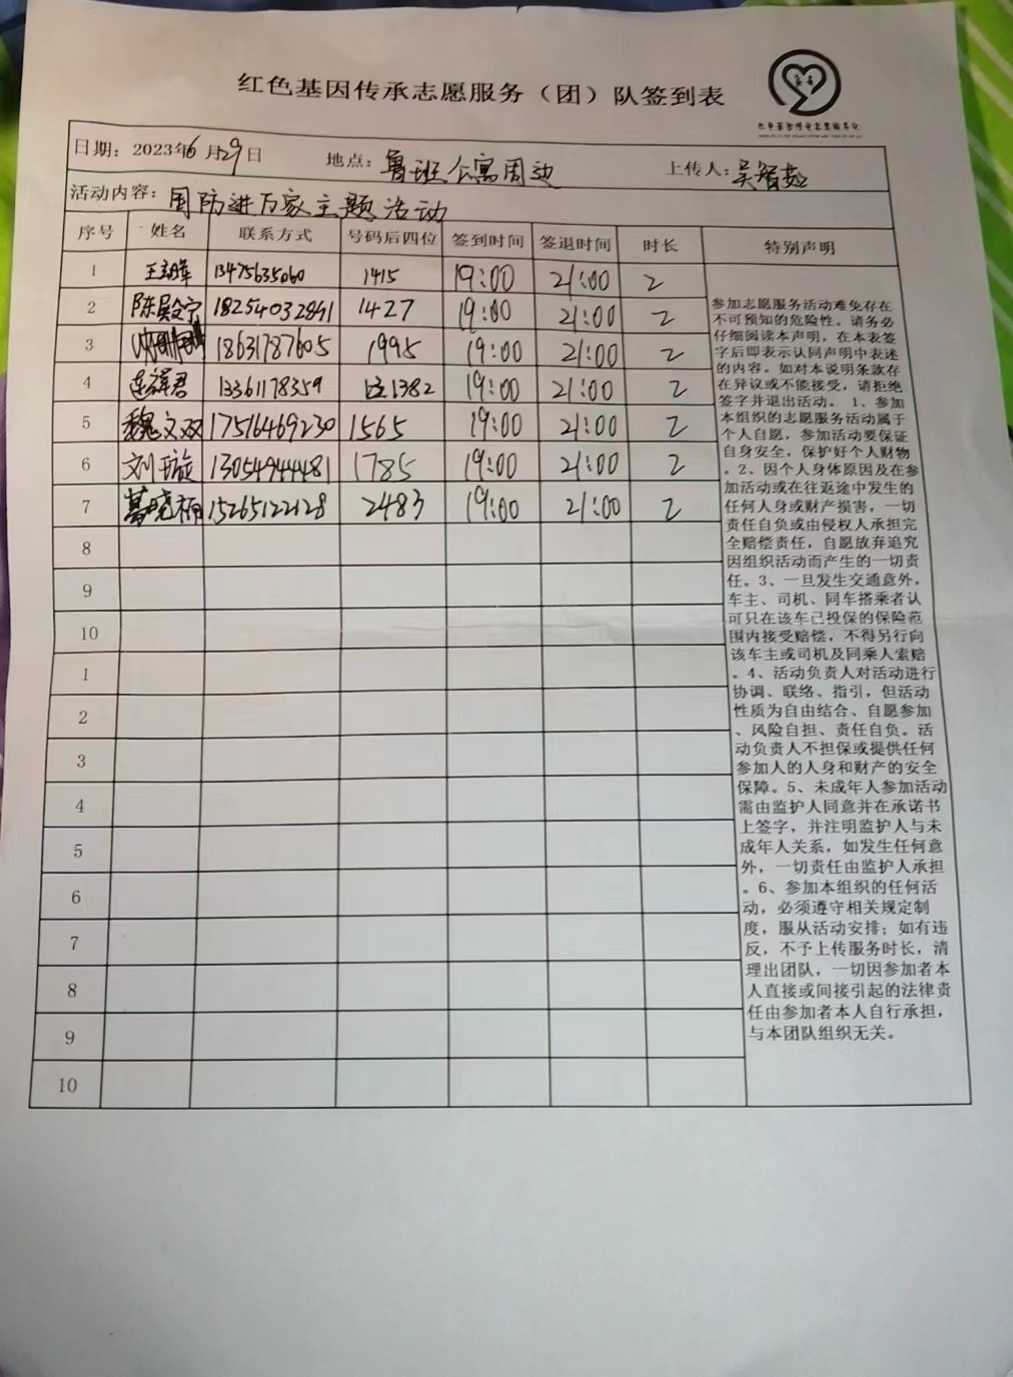 红色基因传承志愿服务（团）队签到表
日期：2023年6月29日 地点：鲁班公寓周边 上传人：吴
活动内容：国防进万家主题活动
序号 姓名 联系方式 号码后四位 签到时间 签退时间 时长 特别声明
1 王 13475635060 1415 19:00 21:00 2
2 陈昊宁 18254032841 1427 19:00 21:00 2
3 18631787605 1995 19:00 21:00 2
4 连祥君 13361178359 1382 19:00 21:00 2
5 魏文双 17516469230 1565 19:00 21:00 2
6 刘璇 13054944481 1785 19:00 21:00 2
7 晓楠 15265122128 2483 19:00 21:00 2
8
9
10
1
2
3
4
5
6
7
8
9
10
参加志愿服务活动难免存在
不可预知的危险性。请务必
仔细阅读本声明，在本表签
字后即表示认同声明中表述
的内容。如对本说明条款存
在异议或不能接受，请拒绝
签字并退出活动。1、参加
本组织的志愿服务活动属于
个人自愿，参加活动要保证
自身安全，保护好个人财物
。2、因个人身体原因及在参
加活动或在往返途中发生的
任何人身或财产损害，一切
责任自负或由侵权人承担完
全赔偿责任，自愿放弃追究
因组织活动而产生的一切责
任。3、一旦发生交通意外，
车主、司机、同车搭乘者认
可只在该车已投保的保险范
围内接受赔偿，不得另行向
该车主或司机及同乘人索赔
。4、活动负责人对活动进行
协调、联络、指引，但活动
性质为自由结合、自愿参加
、风险自担、责任自负。活
动负责人不担保或提供任何
参加人的人身和财产的安全
保障。5、未成年人参加活动
需由监护人同意并在承诺书
上签字，并注明监护人与未
成年人关系，如发生任何意
外，一切责任由监护人承担
。6、参加本组织的任何活
动，必须遵守相关规定制
度，服从活动安排；如有违
反，不予上传服务时长，清
理出团队，一切因参加者本
人直接或间接引起的法律责
任由参加者本人自行承担，
与本团队组织无关。